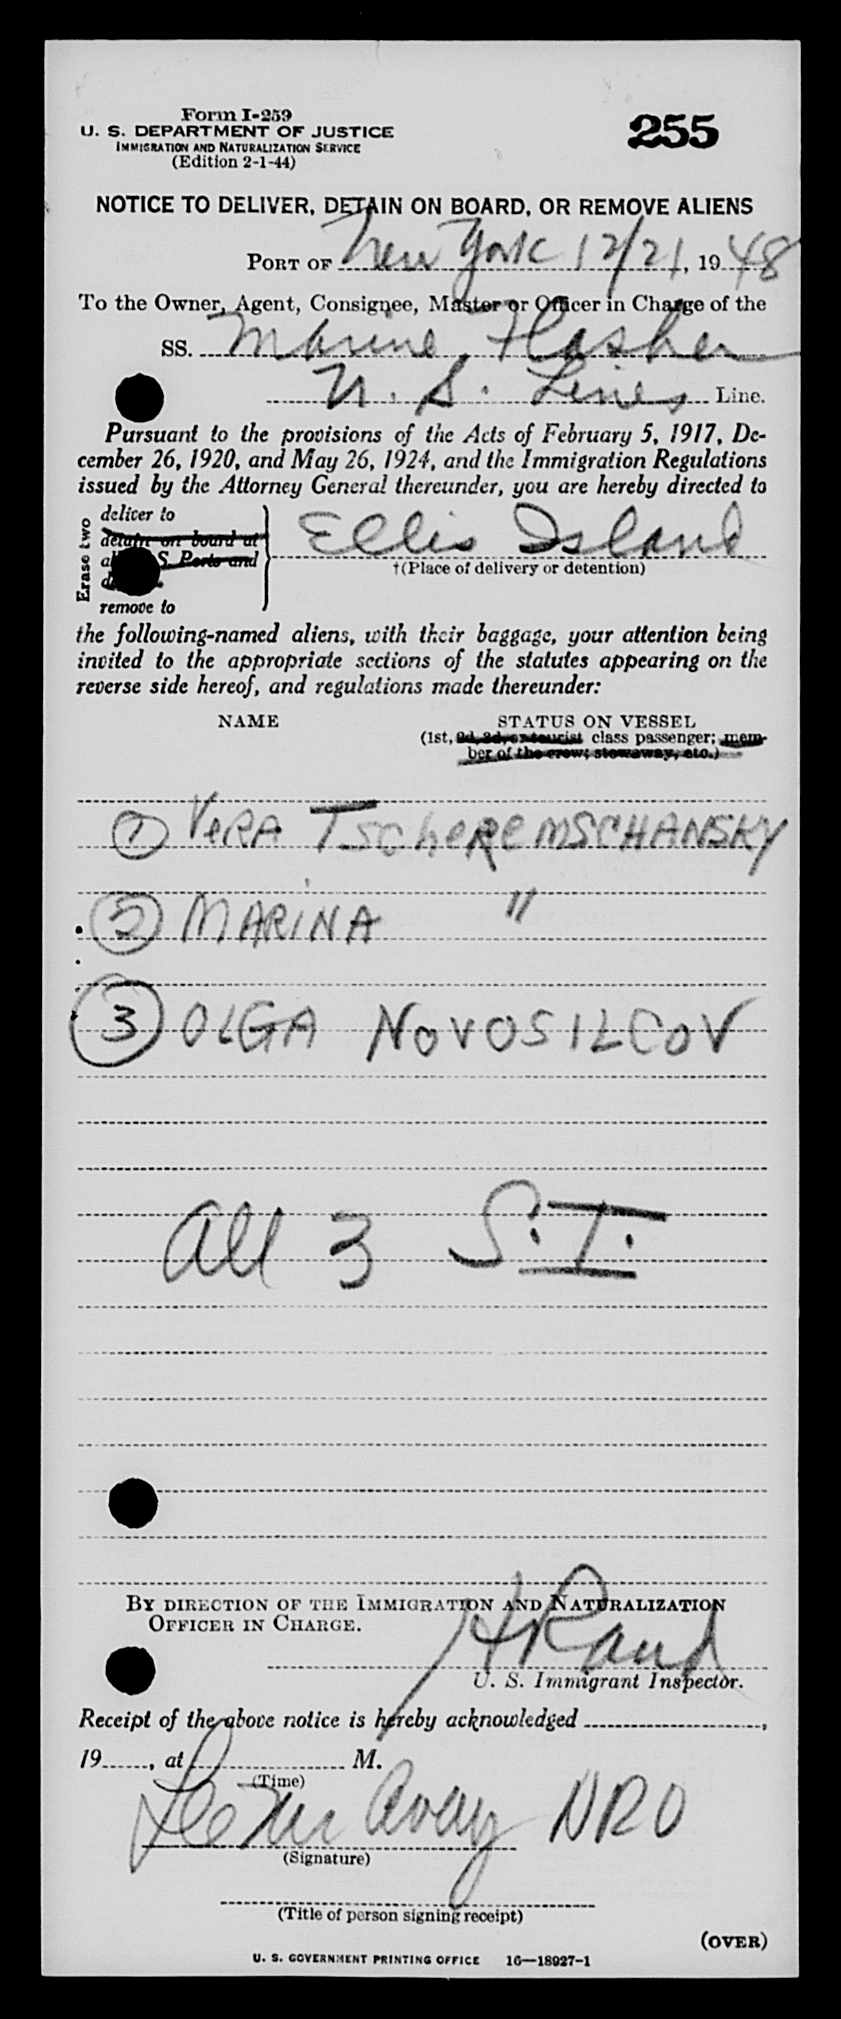 Form I-259
U. S. DEPARTMENT OF JUSTICE
IMMIGRATION AND NATURALIZATION SERVICE
(Edition 2-1-44)
255
NOTICE TO DELIVER, DETAIN ON BOARD, OR REMOVE ALIENS
PORT OF New York 12/21, 1948
To the Owner, Agent, Consignee, Master or Officer in Charge of the
SS. Marine Flasher
U. S. Lines Line.
Pursuant to the provisions of the Acts of February 5, 1917, De-
cember 26, 1920, and May 26, 1924, and the Immigration Regulations
issued by the Attorney General thereunder, you are hereby directed to
Erase two
deliver to
detain on board at
S. Ports and
remove to
Ellis Island
†(Place of delivery or detention)
the following-named aliens, with their baggage, your attention being
invited to the appropriate sections of the statutes appearing on the
reverse side hereof, and regulations made thereunder:
NAME STATUS ON VESSEL
(1st, 2d, 3d, or tourist class passenger; mem-
ber of the crew; stowaway, etc.)
1 VERA TSCHEREMSCHANSKY
2 MARINA "
3 OLGA NOVOSILCOV
All 3 S.I.
BY DIRECTION OF THE IMMIGRATION AND NATURALIZATION
OFFICER IN CHARGE.
H Rand
U. S. Immigrant Inspector.
Receipt of the above notice is hereby acknowledged ,
19 , at M.
(Time)
Avery NRO
(Signature)
(Title of person signing receipt)
(OVER)
U. S. GOVERNMENT PRINTING OFFICE 16—18927-1